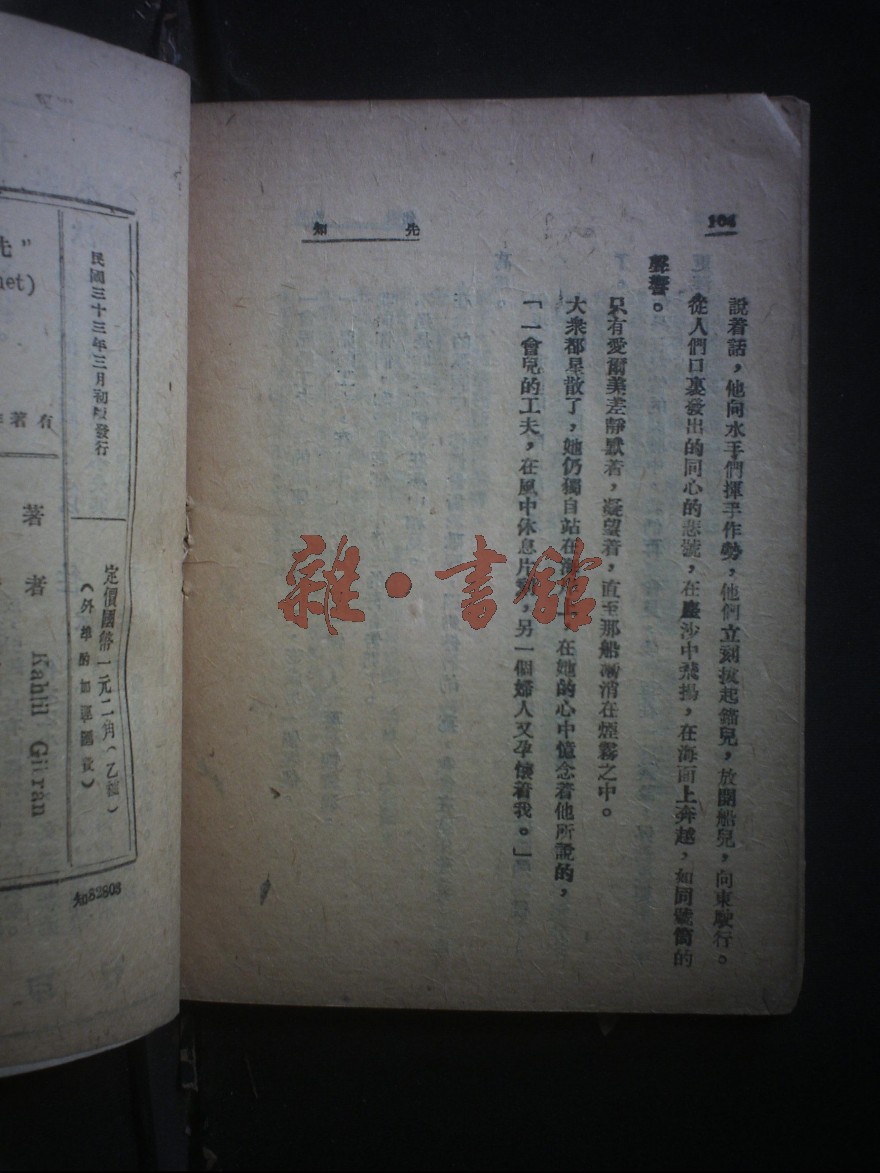 104
先知
說着話，他向水手們揮手作勢，他們立刻拔起錨兒，放開船兒，向東駛行。
從人們口裏發出的同心的悲號，在塵沙中飛揚，在海面上奔越，如同號筒的
聲響。
只有愛爾美差靜默着，凝望着，直至那船漸消在煙霧之中。
大衆都星散了，她仍獨自站在海 在她的心中憶念着他所說的，
「一會兒的工夫，在風中休息片 ，另一個婦人又孕懷着我。」
雜·書館
民國三十三年三月初版發行
定價國幣一元二角（乙種）
（外埠酌加運匯費）
先"
het)
有著
著者
Kahlil Gibran
知82803